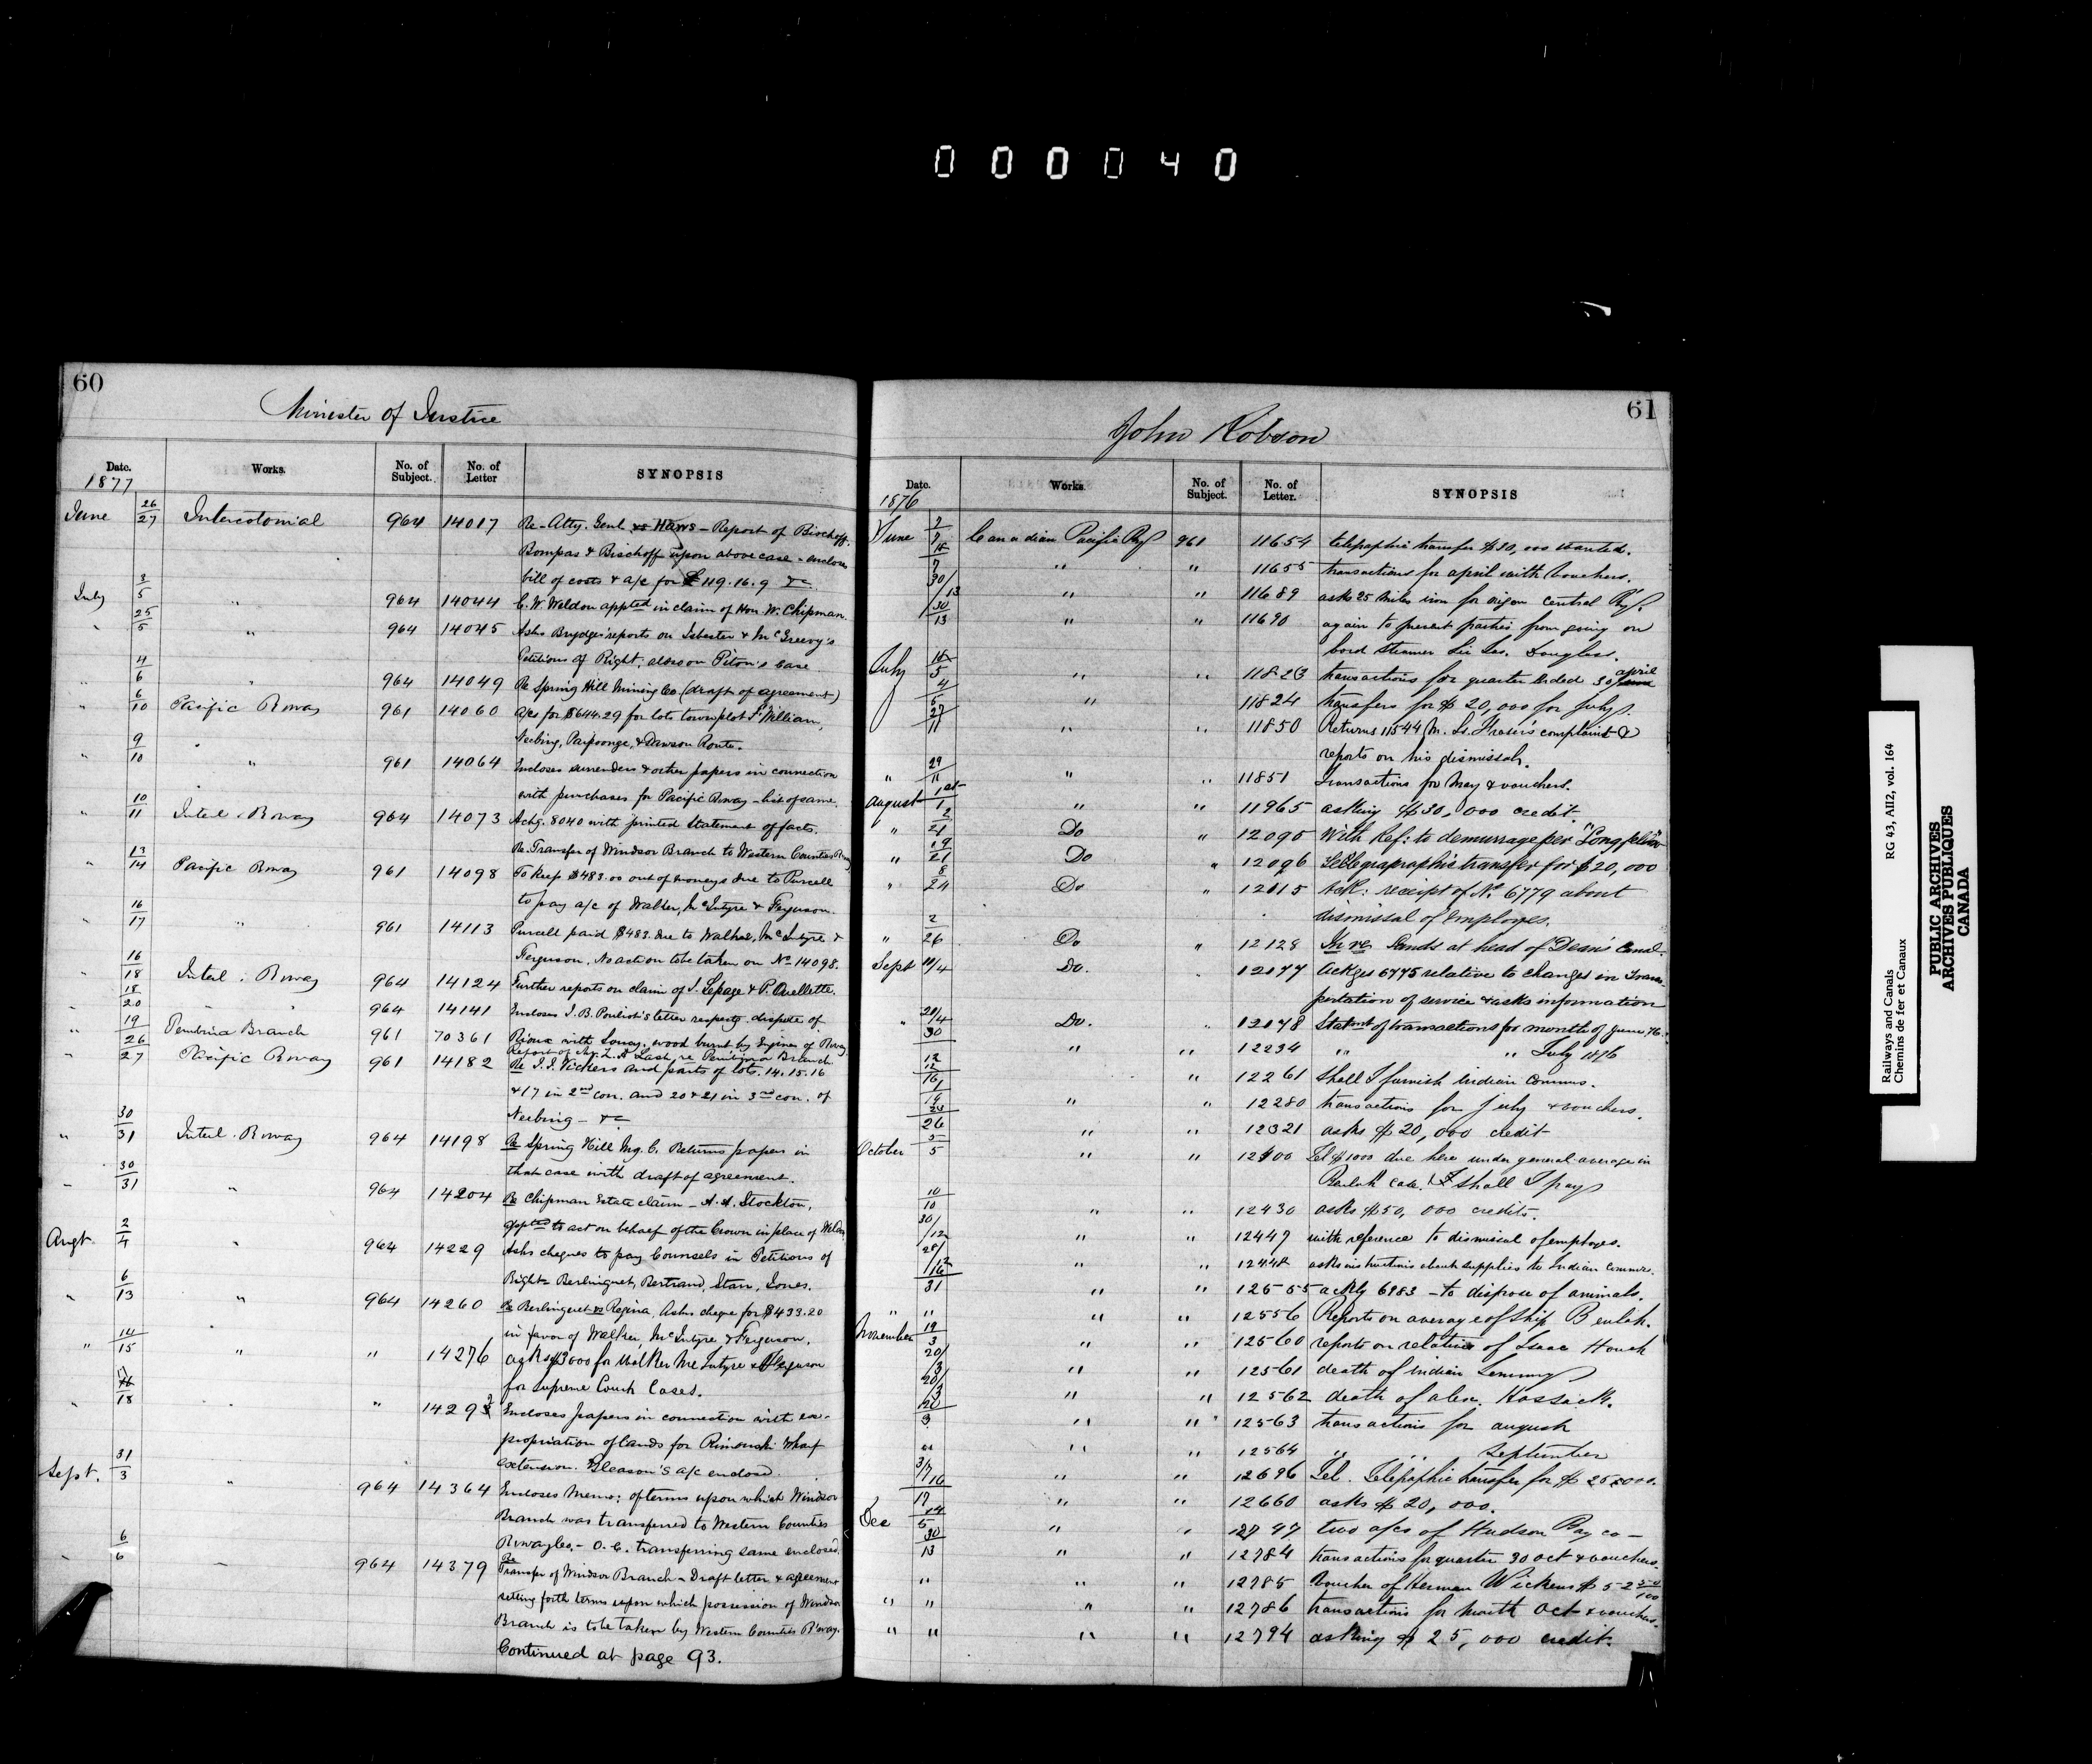 000040
60
Minister of Justice
Date. Works. No. of Subject. No. of Letter SYNOPSIS
1877
June 26/27 Intercolonial 964 14017 Re - Atty. Genl vs Haws - Report of Bischoff
Bompas & Bischoff upon above case - encloses
bill of costs & a/c for £119.16.9 &c
July 3/5 " 964 14044 C. W. Weldon appted in claim of Hon. W. Chipman.
" 25/5 " 964 14045 Asks Brydges' reports on Isbester & McGreevy's
Petitions of Right, also on Piton's case
" 4/6 " 964 14049 Re Spring Hill Mining Co (draft of agreement)
" 6/10 Pacific Rway 961 14060 a/cs for $644.29 for lots town plot Ft William,
Neebing, Paipoonge, & Dawson Route.
" 9/10 " 961 14064 Encloses surrenders & other papers in connection
with purchases for Pacific Rway - list of same.
" 10/11 Intel. Rway 964 14073 Ackg. 8040 with printed Statement of facts.
Re. Transfer of Windsor Branch to Western Counties Rway
" 13/14 Pacific Rway 961 14098 To keep $483.00 out of moneys due to Purcell
to pay a/c of Walker, McIntyre & Ferguson.
" 16/17 " 961 14113 Purcell paid $483. due to Walker, McIntyre &
Ferguson. No action to be taken on No. 14098.
" 16/18 Intel. Rway 964 14124 Further reports on claim of J. Lepage & P. Ouellette.
" 18/20 " " 964 14141 Encloses J. B. Pouliot's letter respectg. dispute of
" 19/26 Pembina Branch 961 70361 Rioux with Soucy, wood burnt by Engines of Rway
Report of Z. A. Lash re Pembina Branch
" 27 Pacific Rway 961 14182 Re J. J. Vickers and parts of lots. 14. 15. 16
& 17 in 2nd con. and 20 & 21 in 3rd con. of
Neebing - &c
" 30/31 Intel. Rway 964 14198 Re Spring Hill Mg. C. Returns papers in
that case with draft of agreement.
" 30/31 " 964 14204 Re Chipman Estate claim - A. A. Stockton,
appted to act on behalf of the Crown in place of Weldon
Augt. 2/4 " 964 14229 Asks cheques to pay Counsels in Petitions of
Right Berlinguet, Bertrand, Starr, Jones.
" 6/13 " 964 14260 Re Berlinguet vs Regina. Asks cheque for $433.20
in favor of Walker, McIntyre & Ferguson.
" 14/15 " " 14276 asks $3000 for Walker McIntyre & Ferguson
for Supreme Court Cases.
" 18 " " 14293 Encloses papers in connection with ex-
propriation of lands for Rimouski Wharf
extension. Gleason's a/c enclosed.
Sept. 31/3 " 964 14364 Encloses Memo: of terms upon which Windsor
Branch was transferred to Western Counties
Rway Co. - O. C. transferring same enclosed.
" 6/6 " 964 14379 Re Transfer of Windsor Branch - Draft letter & agreement
setting forth terms upon which possession of Windsor
Branch is to be taken by Western Counties R'way.
Continued at page 93.
61
John Robson
Date. Works. No. of Subject. No. of Letter. SYNOPSIS
1876
June 2/7 Canadian Pacific Ry 961 11654 telegraphic transfer $30,000 wanted.
18/7 " " 11655 transactions for april with vouchers.
30/13 " " 11689 asks 25 miles iron for origon Central Ry.
30/13 " " 11690 again to prevent parties from going on
bord steamer Sir Jas. Douglass.
July 18/5 " " 11823 transactions for quarter ended 30 april
4/5 " 11824 transfers for $20,000 for July.
27/11 " " 11850 Returns 11544 (M. L. Fraser's complaint &
reports on his dismissal.
" 29/11 " " 11851 Transactions for May & vouchers.
August 1st/1 " " 11965 asking $30,000 credit.
" 2/21 Do " 12095 With Ref: to demurrage per "Longfellow"
" 19/21 Do " 12096 Tellegrapraphic transfer for $20,000
" 8/24 Do " 12015 Ack: receipt of No. 6779 about
dismissal of employes.
" 2/26 Do " 12128 In re Lands at head of Dean's Canal.
Sept 11/4 Do. " 12077 Ackges 6775 relative to changes in Trans-
portation of service & asks information
" 20/4 Do. " 12078 Statmt of transactions for month of June 76.
30 " " 12234 " " July 1876
12/12 " 12261 Shall I furnish Indian Comms.
16/19 " " 12280 transactions for July & vouchers.
23/26 " " 12321 asks $20,000 credit
October 5/5 " " 12400 Tel $1000 due here under general average in
Beulah case. shall I pay
10/10 " " 12430 asks $50,000 credits.
30/12 " " 12447 with reference to dismissal of employes.
28/12 " " 12448 asks instructions about supplies to Indian Commrs.
16/31 " " 12555 ackly 6983 - to dispose of animals.
" " " " 12556 Reports on average of ship Beulah.
November 19/3 " " 12560 reports on relative of Isaac Houck
20/3 " " 12561 death of Indian Sammy
20/3 " " 12562 death of alex. Hossack.
20/3 " " 12563 transactions for august
" " " 12564 " " September
3/7 " " 12696 Tel. Telegraphic transfer for $25,000.
16/17 " " 12660 asks $20,000.
Dec 14/5 " " 12747 two a/cs of Hudson Bay co -
30/13 " " 12784 transactions for quarter 30 oct & vouchers.
" " " 12785 Voucher of Herman Wickens $52 50/100
" " " " 12786 transactions for month Oct & vouchers.
" " " " 12794 asking $25,000 credit.
Railways and Canals RG 43, AII2, vol. 164
Chemins de fer et Canaux
PUBLIC ARCHIVES
ARCHIVES PUBLIQUES
CANADA